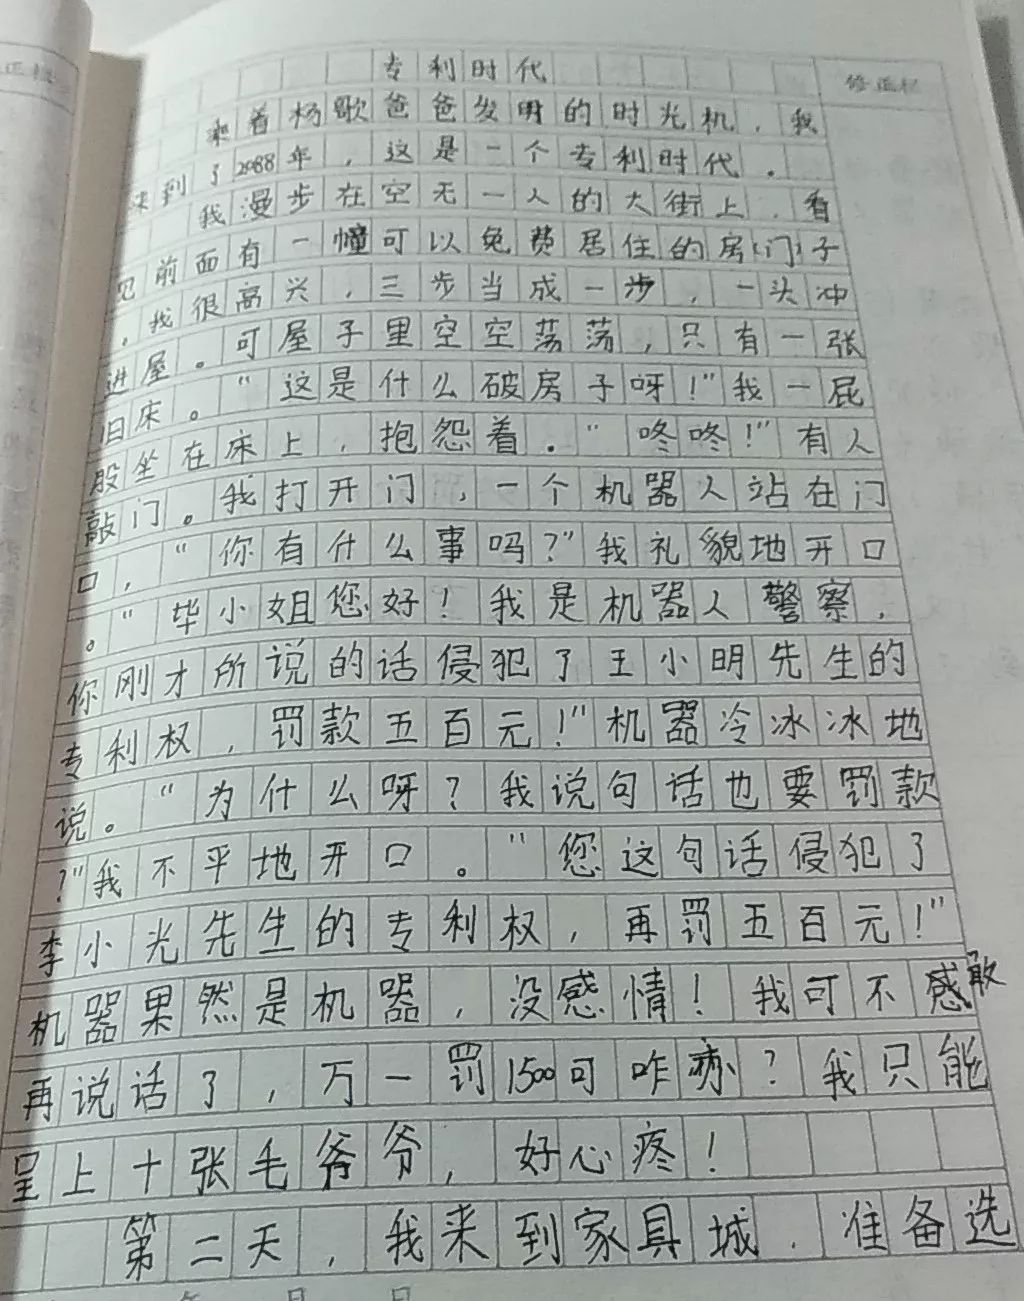 修正栏
专利时代
乘着杨歌爸爸发明的时光机，我
来到了2088年，这是一个专利时代。
我漫步在空无一人的大街上，看
见前面有一幢可以免费居住的房(门)子
，我很高兴，三步当成一步，一头冲
进屋。可屋子里空空荡荡，只有一张
旧床。“这是什么破房子呀！”我一屁
股坐在床上，抱怨着。“咚咚！”有人
敲门。我打开门，一个机器人站在门
口，“你有什么事吗？”我礼貌地开口
。“毕小姐您好！我是机器人警察，
你刚才所说的话侵犯了王小明先生的
专利权，罚款五百元！”机器冷冰冰地
说。“为什么呀？我说句话也要罚款
？”我不平地开口。“您这句话侵犯了
李小光先生的专利权，再罚五百元！”
机器果然是机器，没感情！我可不感敢
再说话了，万一罚1500可咋办？我只能
呈上十张毛爷爷，好心疼！
第二天，我来到家具城，准备选
年 月 日